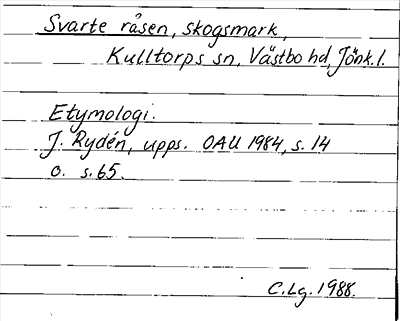 Svarte råsen, skogsmark,
Kulltorps sn, Västbo hd, Jönk.l.
Etymologi.
J. Rydén, upps. OAU 1984, s. 14
o. s. 65.
C.Lg. 1988.